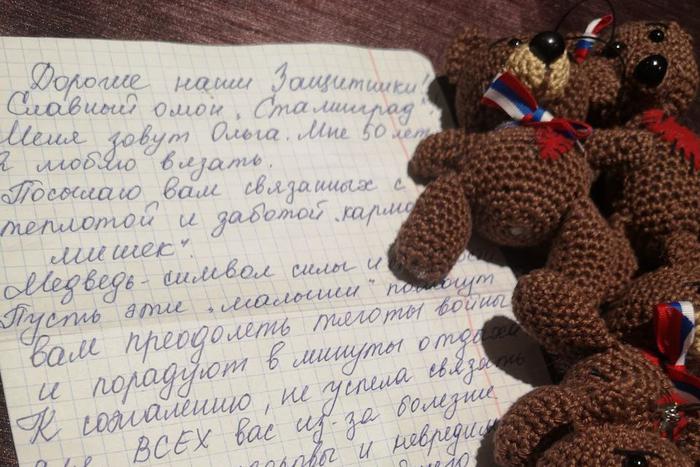 Дорогие наши Защитники!
Славный омон „Сталинград".
Меня зовут Ольга. Мне 50 лет
Я люблю вязать.
Посылаю вам связанных с
теплотой и заботой „карма
мишек".
Медведь - символ силы и
Пусть эти „малыши" помогут
вам преодолеть тяготы войны
и порадуют в минуты отдыха
К сожалению, не успела связать
ВСЕХ вас из-за болезни
и невредим